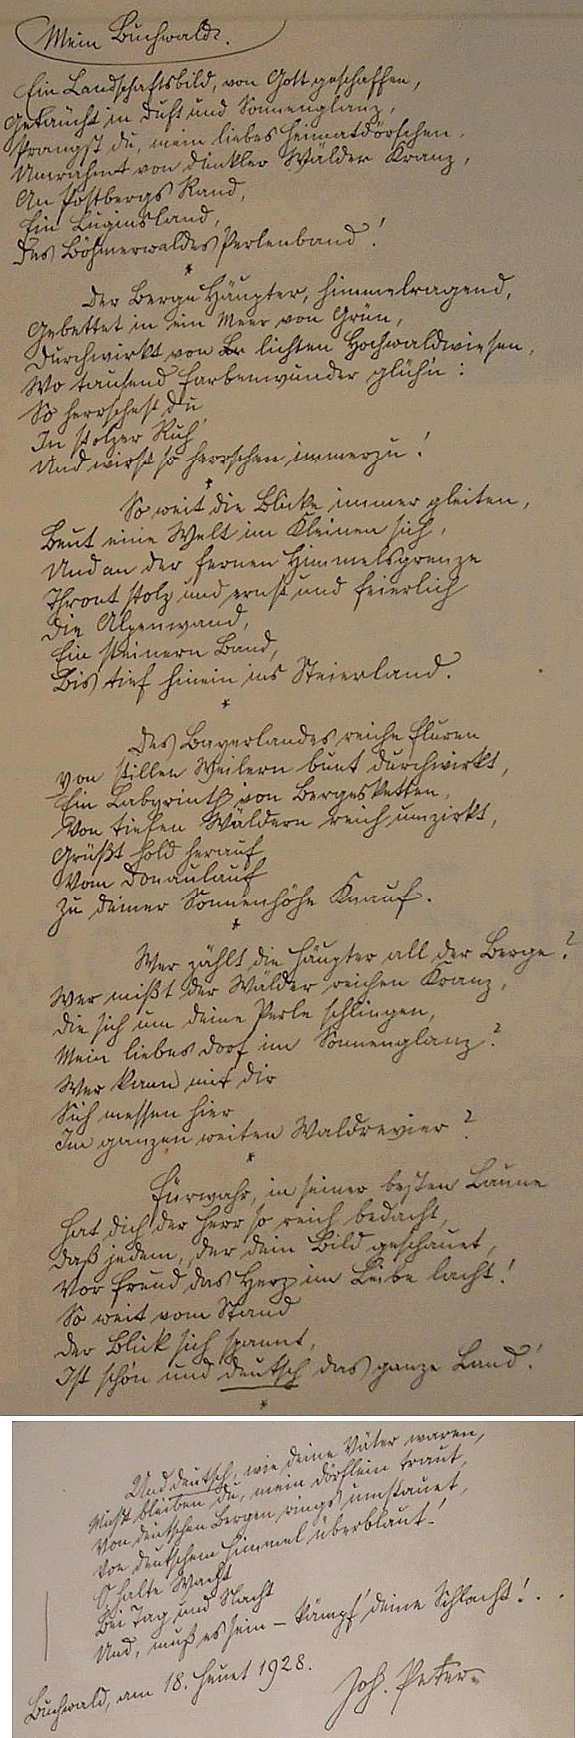 Mein Buchwald.
Ein Landschaftsbild, von Gott geschaffen,
Getaucht in Duft und Sonnenglanz,
Prangst du, mein liebes Heimatdörfchen,
Umrahmt von dunkler Wälder Kranz,
Am Postbergs Rand,
Ein Luginsland,
Des Böhmerwaldes Perlenband!
*
Der Berge Häupter, himmelragend,
Gebettet in ein Meer von Grün,
Durchwirkt von lichten Hochwaldwiesen,
Wo tausend Farbenwunder glüh'n:
So herrschest du
In stolzer Ruh'
Und wirst so herrschen immerzu!
*
So weit die Blicke immer gleiten,
Beut eine Welt im Kleinen sich,
Und an der fernen Himmelsgrenze
Thront stolz und ernst und feierlich
Die Alpenwand,
Ein steinern Band,
Bis tief hinein ins Steierland.
*
Des Bayerlandes reiche Fluren
Von stillen Weilern bunt durchwirkt,
Ein Labyrinth von Bergesketten,
Von tiefen Wäldern reich umzirkt,
Grüßt hold herauf
Vom Donaulauf
Zu deiner Sonnenhöhe Knauf.
*
Wer zählt die Häupter all der Berge?
Wer mißt der Wälder reichen Kranz,
Die sich um deine Perle schlingen,
Mein liebes Dorf im Sonnenglanz?
Wer kann mit dir
Sich messen hier
Im ganzen weiten Waldrevier?
*
Fürwahr, in seiner besten Laune
Hat dich der Herr so reich bedacht,
Daß jedem, der dein Bild geschauet,
Vor Freud das Herz im Leibe lacht!
So weit vom Stand
Der Blick sich spannt,
Ist schön und deutsch das ganze Land!
*
Und deutsch, wie deine Väter waren,
Mußt bleiben du, mein Dörflein traut,
Von deutschen Bergen rings umstauet,
Von deutschem Himmel überblaut!
O halte Wacht
Bei Tag und Nacht
Und, muß es sein – kämpf' deine Schlacht! . .
Buchwald, am 18. Heuet 1928.
Joh. Peter.